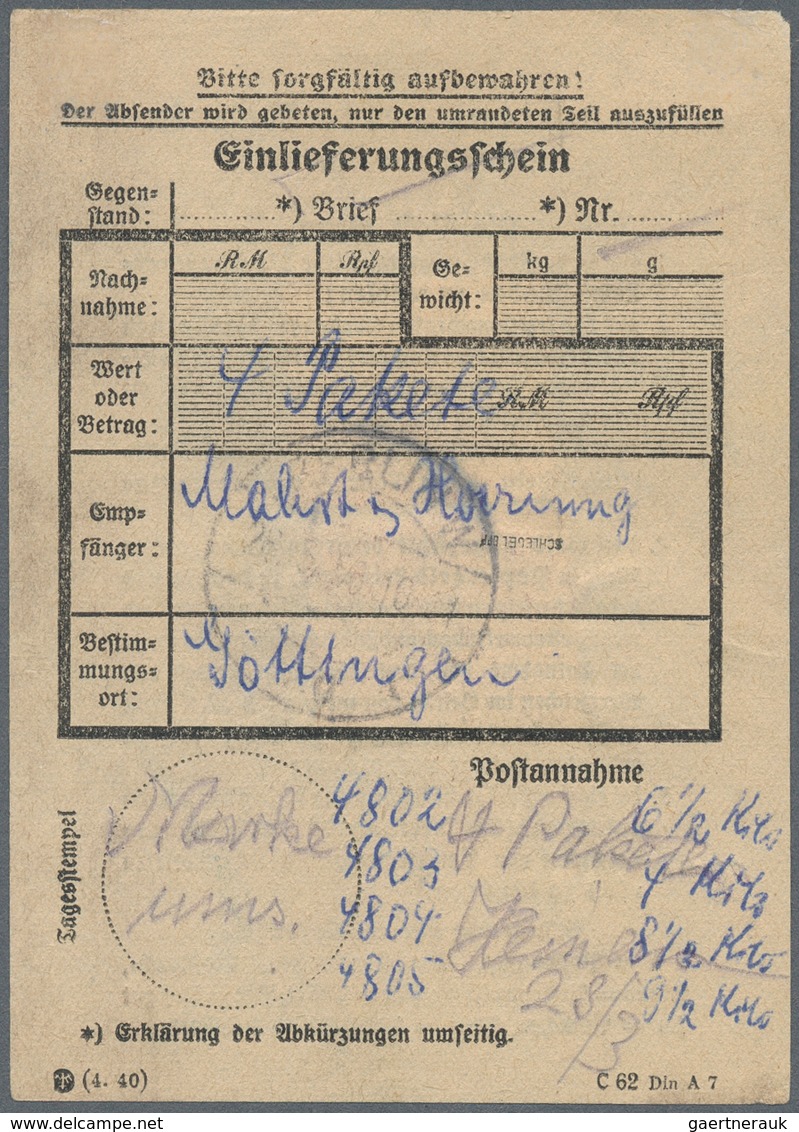 Bitte sorgfältig aufbewahren!
Der Absender wird gebeten, nur den umrandeten Teil auszufüllen
Einlieferungsschein
Gegen-
stand:
*) Brief *) Nr.
Nach-
nahme:
RM Rpf
Ge-
wicht:
kg g
Wert
oder
Betrag:
4 Pakete
RM Rpf
Emp-
fänger:
SCHLEGEL
Bestim-
mungs-
ort:
Göttingen
Postannahme
Tagesstempel
Marke
ums.
4802 6 1/2 Kilo
4803 4 Kilo
4804 8 1/2 Kilo
4805 9 1/2 Kilo
4 Pakete
28/3
*) Erklärung der Abkürzungen umseitig.
(4. 40)
C 62 Din A 7
gaertnerauk